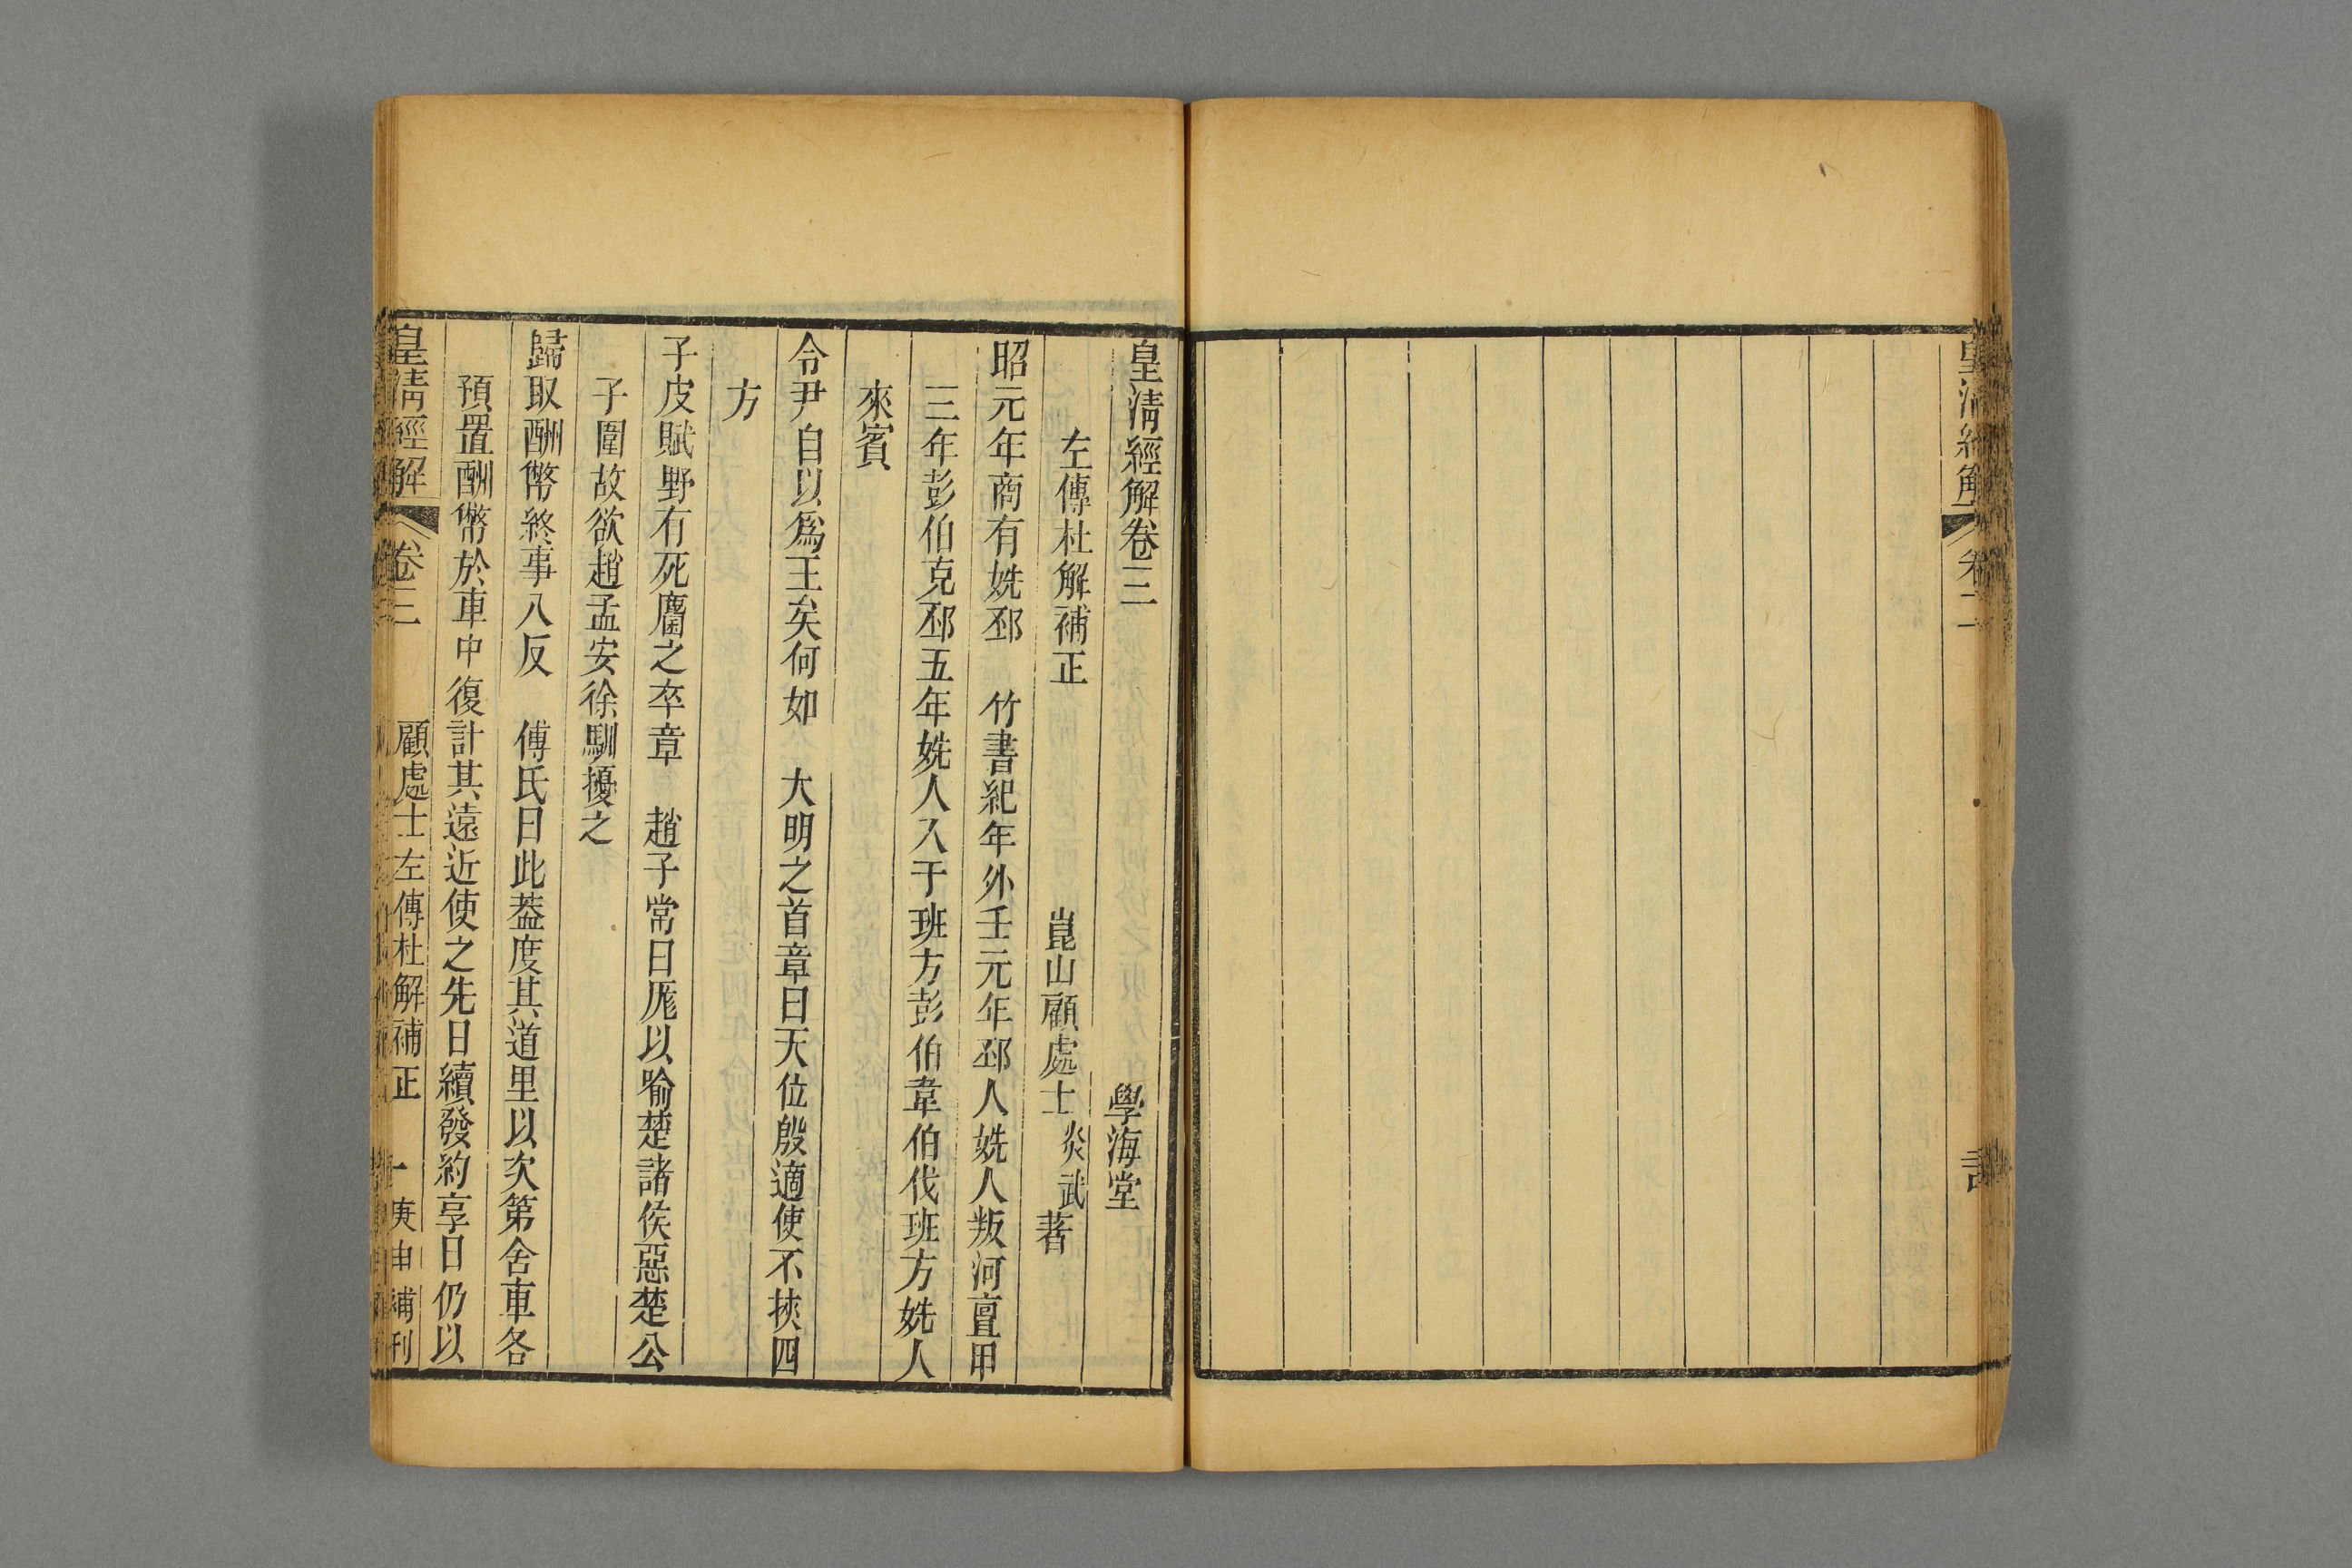 皇清經解
皇清經解卷三 學海堂
左傳杜解補正 崑山顧處士炎武著
昭元年商有姺邳 竹書紀年外壬元年邳人姺人叛河亶甲
三年彭伯克邳五年姺人入于班方彭伯韋伯伐班方姺人
來賓
令尹自以爲王矣何如 大明之首章曰天位殷適使不挾四
方
子皮賦野有死麕之卒章 趙子常曰厖以喻楚諸侯惡楚公
子圍故欲趙孟安徐馴擾之
歸取酬幣終事八反 傅氏曰此葢度其道里以次第舍車各
預置酬幣於車中復計其遠近使之先日續發約享日仍以
皇清經解 卷三 顧處士左傳杜解補正 一 庚申補刊